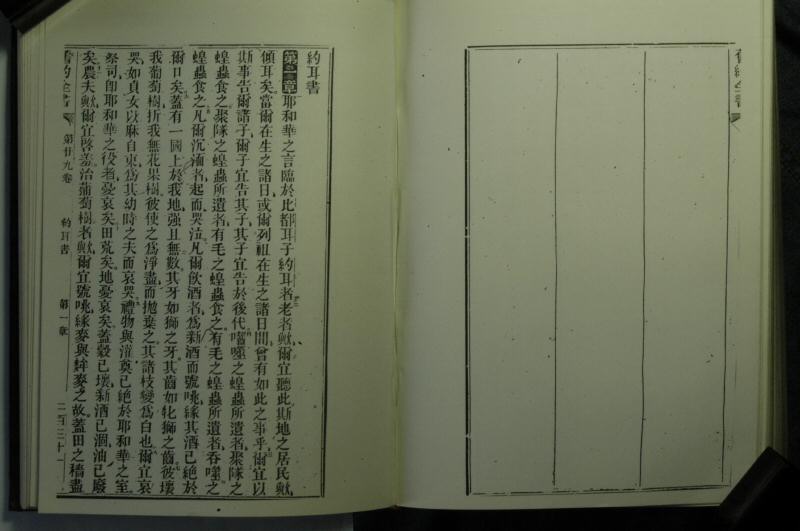 舊約全書
約耳書
第一章 耶和華之言臨於比都耳子約耳者老者歟爾宜聽此斯地之居民歟
傾耳矣當爾在生之諸日或爾列祖在生之諸日間會有如此之事乎爾宜以
斯事告爾諸子爾子宜告其子其子宜告於後代囓噬之蝗蟲所遺者聚隊之
蝗蟲食之聚隊之蝗蟲所遺者有毛之蝗蟲食之有毛之蝗蟲所遺者吞噬之
蝗蟲食之凡爾沉湎者起而哭泣凡爾飲酒者為新酒而號咷緣其酒已絕於
爾口矣蓋有一國上於我地強且無數其牙如獅之牙其齒如牝獅之齒彼壞
我葡萄樹折我無花果樹彼使之為淨盡而拋棄之其諸枝變為白也爾宜哀
哭如貞女以麻自束為其幼時之夫而哀哭禮物與灌奠已絕於耶和華之室
祭司即耶和華之役者憂哀矣田荒矣地憂哀矣蓋穀已壞新酒已涸油已廢
矣農夫歟爾宜啓羞治葡萄樹者歟爾宜號咷緣麥與麰麥之故蓋田之穡盡
舊約全書 第廿九卷 約耳書 第一章 二百三十一